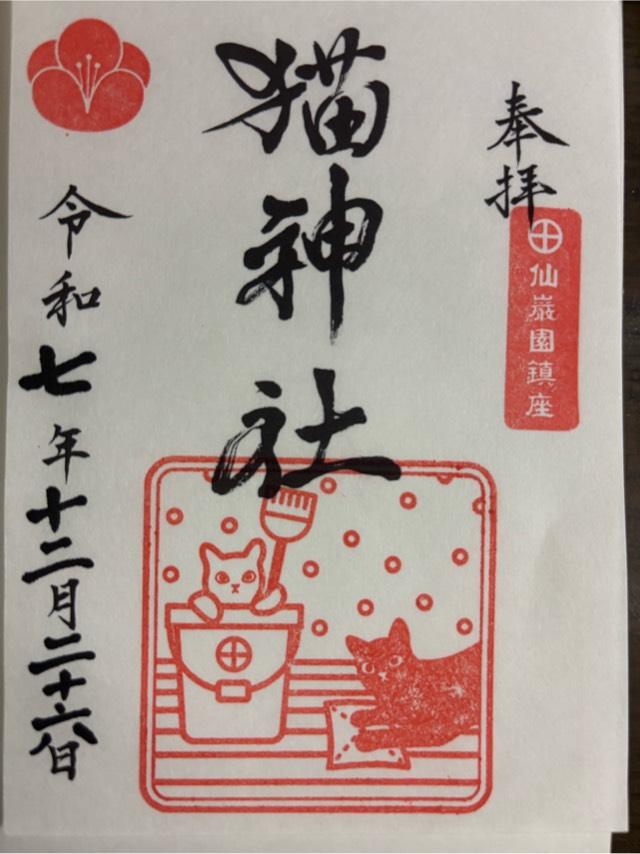 奉拝
仙巌園鎮座
猫神社
令和七年十二月二十六日